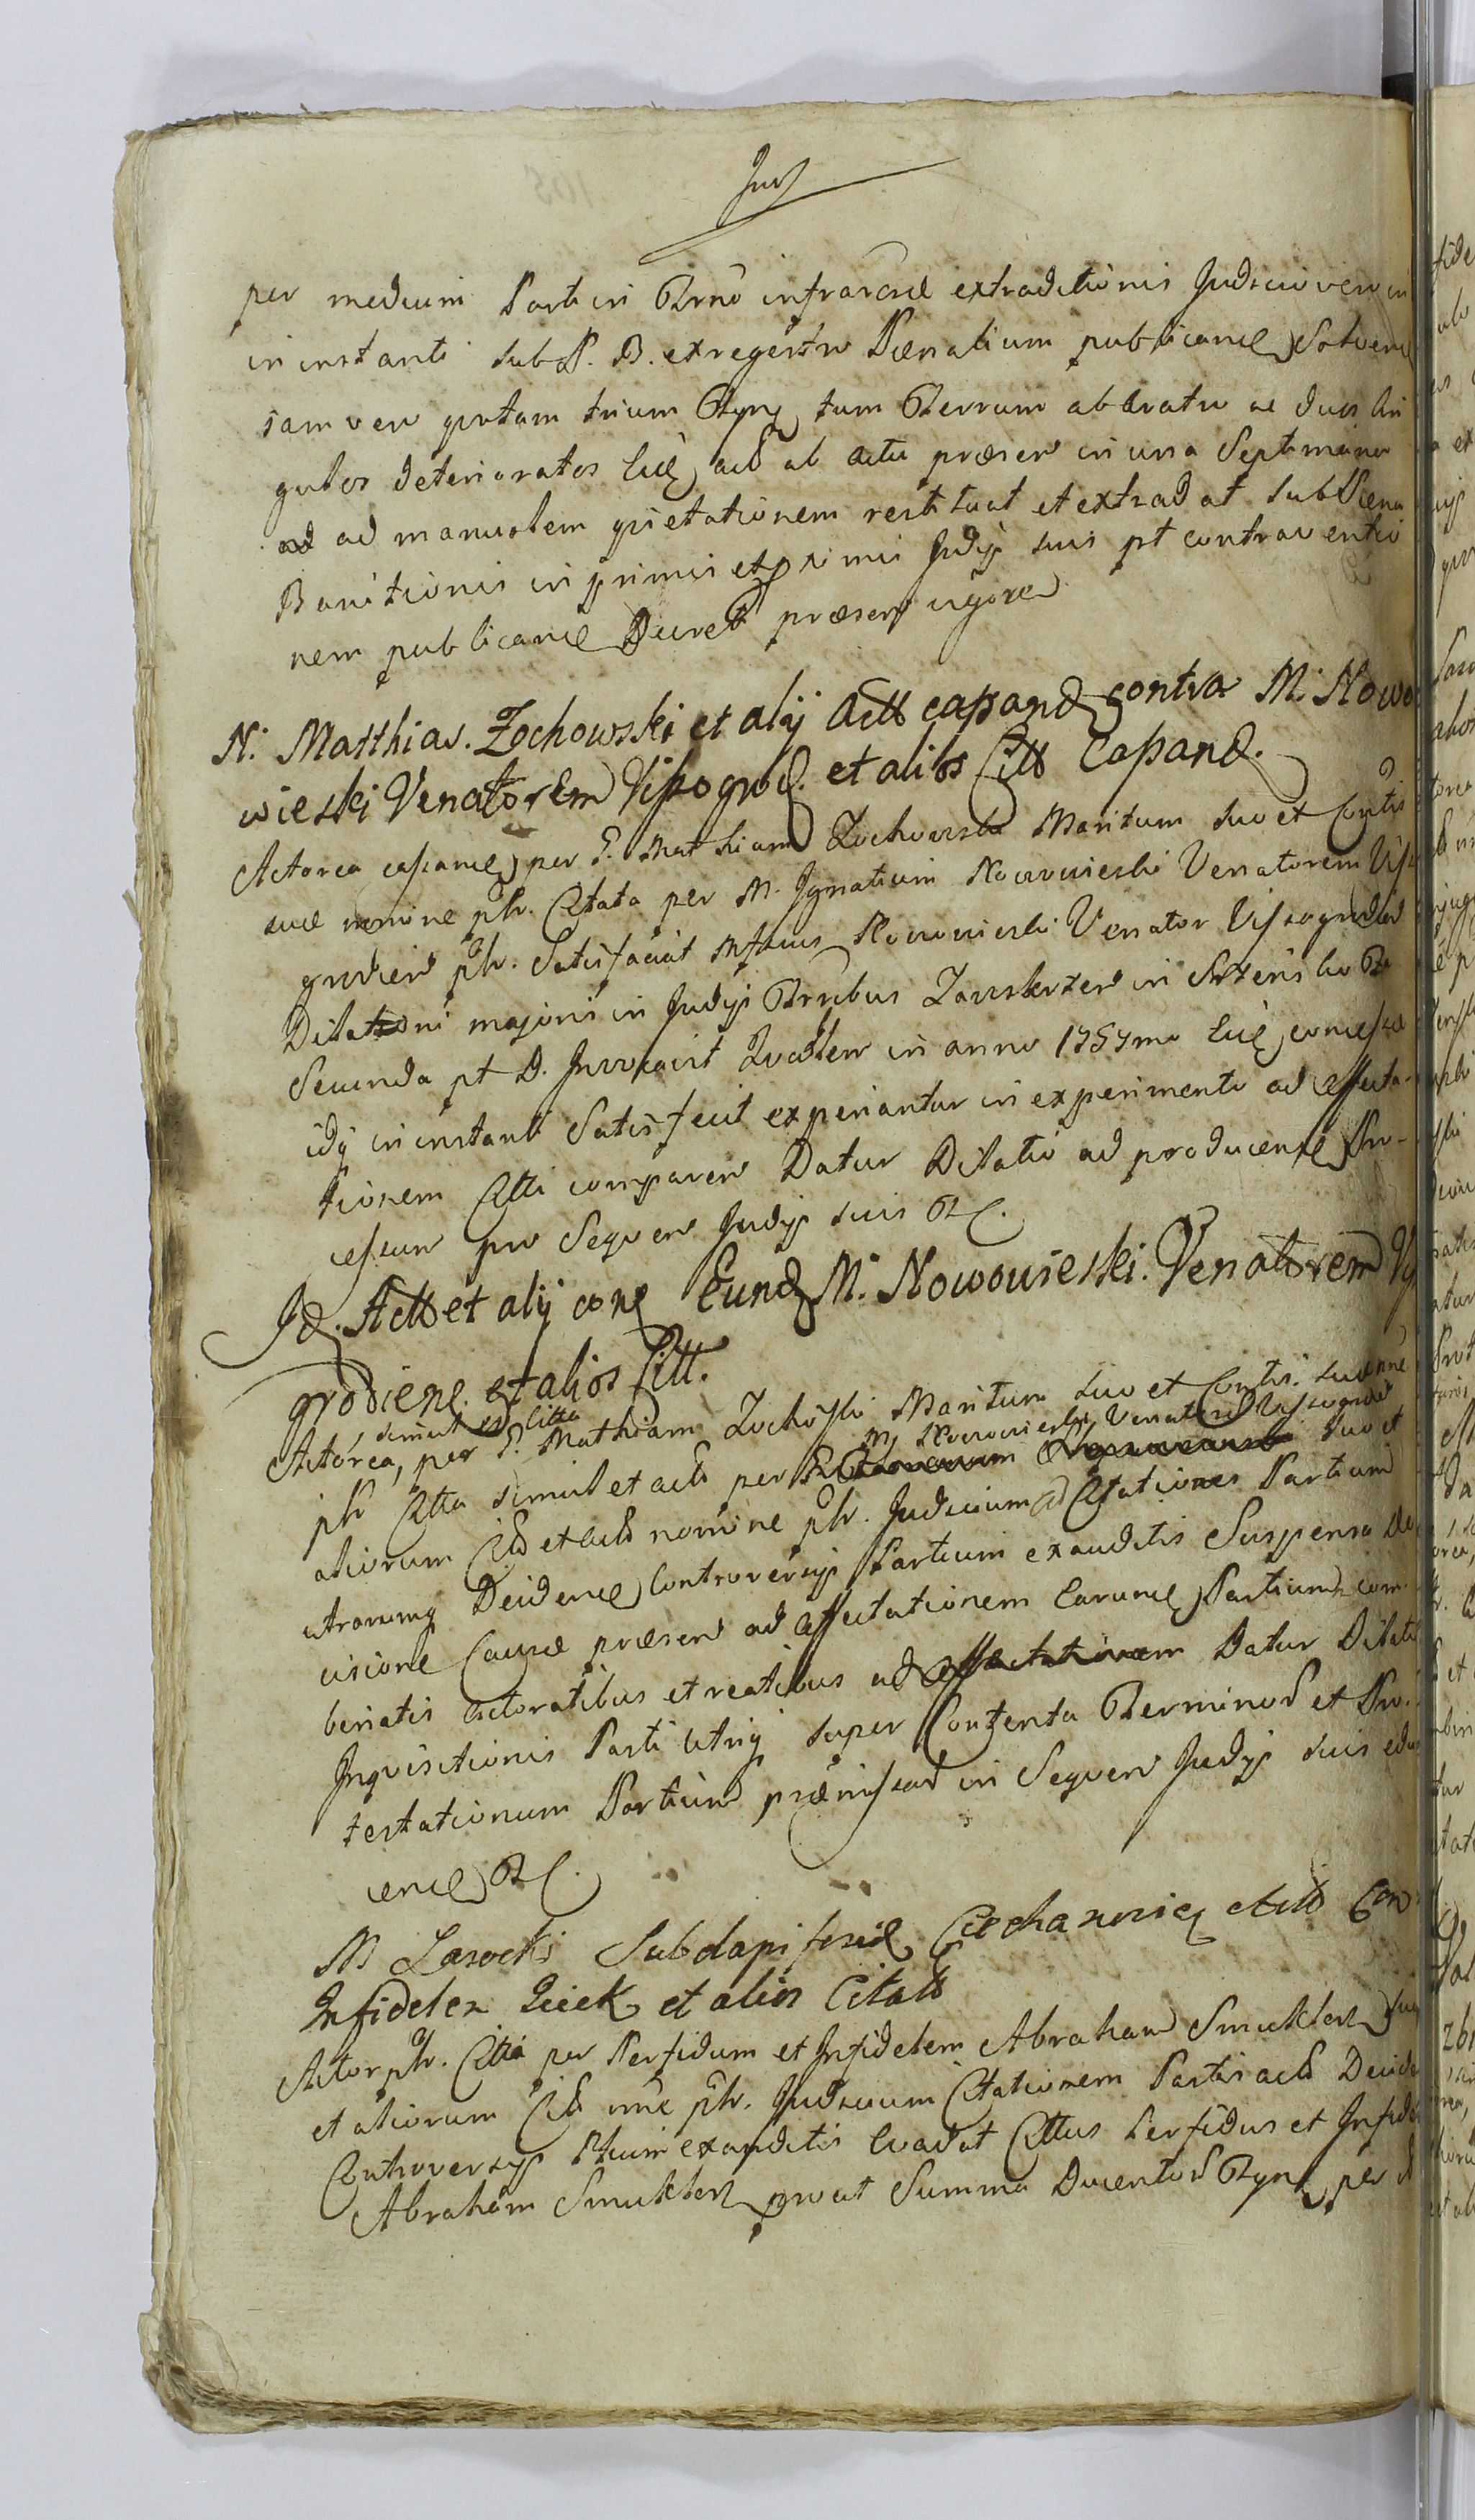 per medium Parti in Trno infrarond extraditionis Judicio vero in
in instanti sub P. B. ex regestro Pœnalium publicand Solvend
iam vero gutam trium Tynf tum Ferrum ab Aratro ac duos An
gulos deterioratos Eid act ab actu præsen in una Septimana
ad manualem quietationem restituat et extradat sub Pœna
Banitionis in primis et proximis Judijs suis pt contraventio
nem publicand Decreti præsen vigore
N. Matthias Zochowski et alij Actt capand contra M. Nowo
wieski Venatorem Vissogrod. et alios Citt Capand.
Actorea capand per G. Mathiam Zochowski Maritum suo et Contis
suæ nomine phr. Citata per M. Ignatium Nowowieski Venatorem Visso
grodien phr. Satisfaciat Mfcus Nowowieski Venator Vissogrodien
Dilationi majoris in Judijs Trribus Zawskrzen in Srzensko Fa
Secunda pt D. Invocavit Quadlem in anno 1757mo Eid concessæ
idq in instanti Satisfecit experiantur in experimento ad affecta-
tionem Citti comparen Datur Dilatio ad producend Pro-
cessum pro Sequen Judijs suis &c.
Id. Actt et alij con Eund M. Nowowieski Venatorem Vi
grodiens. et alios Citt.
simul et citta M. Nowowieski Venatorem Vissogrod
Actorea, per G. Mathiam Zochowski Maritum suo et Contis. suæ nne
phr Citta simul et act per suo et
aliorum Citt et actt nomine phr. Judicium ad Citationes Partium
utrarumq Decidend Controversijs Partium exauditis Suspensa De
cisione Causæ præsen ad affectationem Earund Partium com
beriatis actoratibus et reatibus ad affectationem Datur Dilatio
Inquisitionis Parti utriq super Contenta Terminor et Pro-
testationum Partium præmissar in Sequen Judijs suis edu
cend &c.
M Lasocki Subdapiferid Ciechanovien Actt Con
Infidelem Icek et alios Citatt
Actor phr. Citta per Perfidum et Infidelem Abraham Smuklerz suo
et aliorum Citt nne phr. Judicium Citationem Partis act Decide
Controversijs Ptium exauditis Evadat Cittus Perfidus et Infide
Abraham Smuklerz prout Summa Ducentor Tynf per